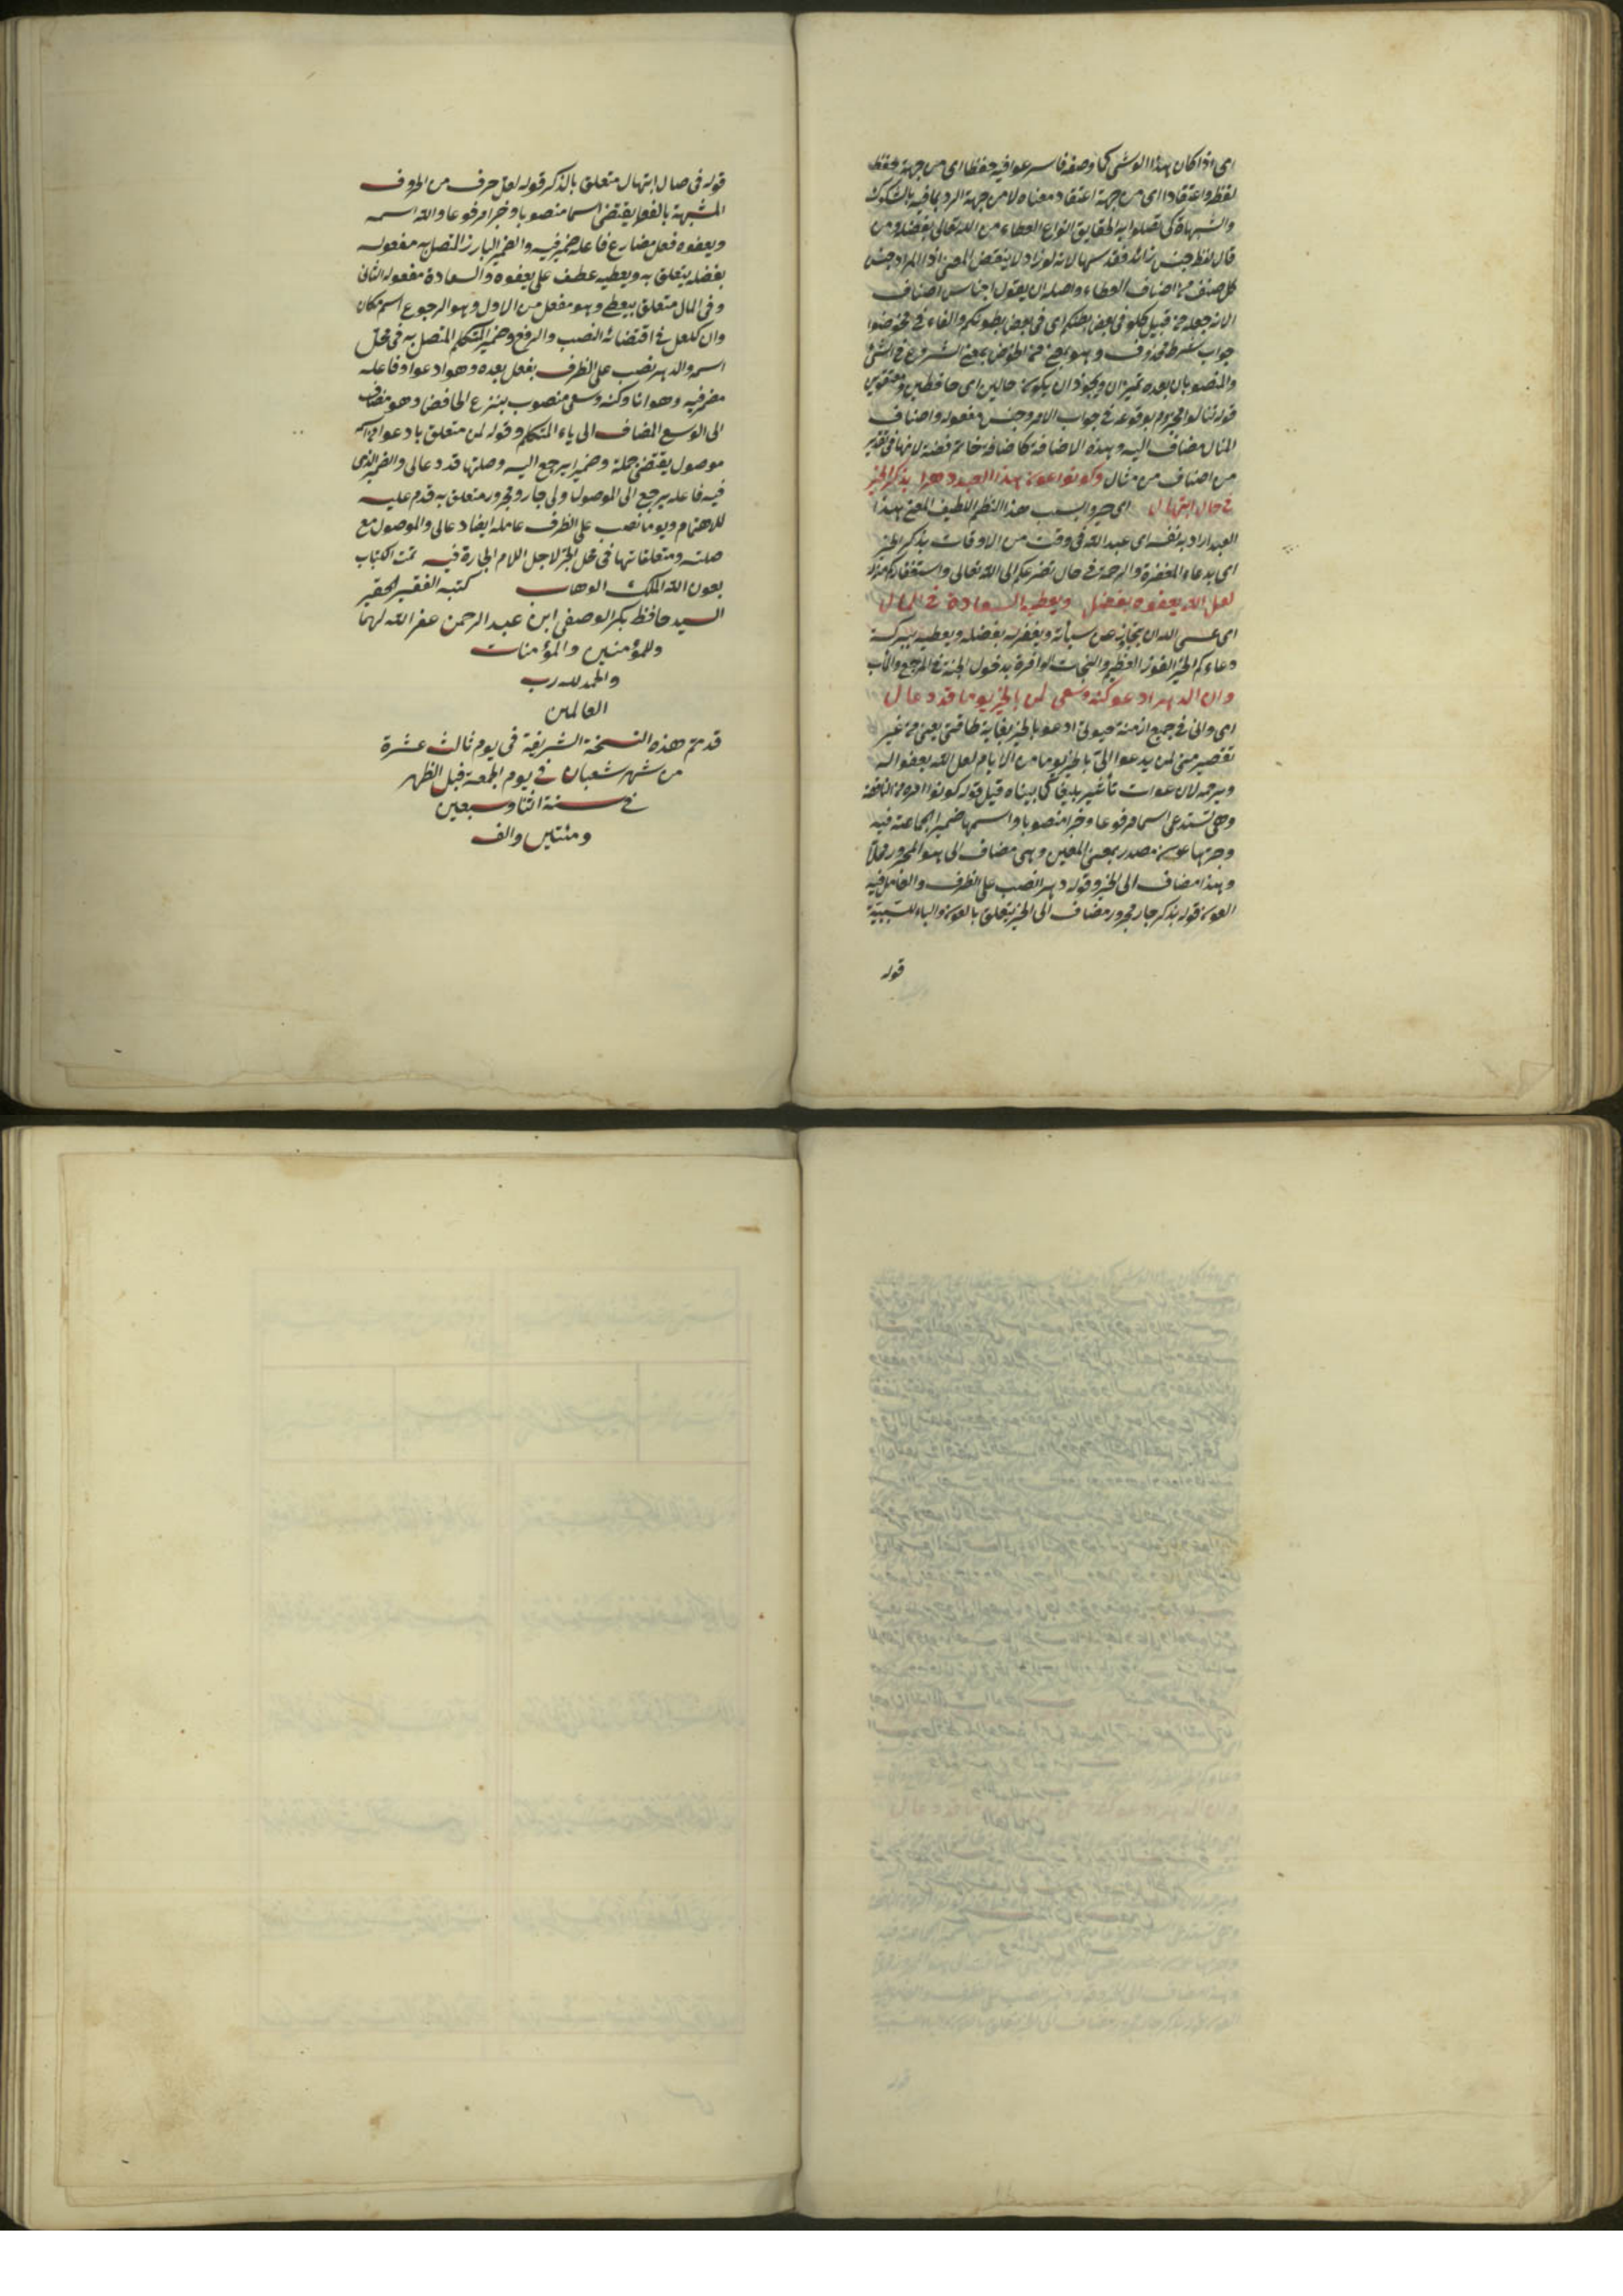 اى اذا كان هذا الوشى كما وصفه فاسرعوا فيه حفظا اى من جهة حفظ
لفظه واعتقادا اى من جهة اعتقاد معناه لا من جهة الرد بما فيه بالشكوك
والشبهات كى تصلوا به الحقايق انواع العطاء من الله تعالى بفضله ومن
قال لفظ جنس زائد فقد سها لانه لو زاد لا ينتقض المعنى اذ المراد جنس
كل صنف من اصناف العطاء واصله ان يقول اجناس اصناف
الا انه جعله من قبيل كلوا فى بعض بطنكم اى فى بعض بطونكم والفاء فى فخوضوا
جواب شرط محذوف وهو بمعنى من الخوض بمعنى الشروع فى الشئ
والمنصوبان بعده تميزان ويجوز ان يكونا حالين اى حافظين ومعتقدين
قوله تنالوا مجزوم بوقوعه فى جواب الامر وجنس مفعوله واصناف
المنال مضاف اليه وهذه الاضافة كاضافة خاتم فضة لانها فى تقدير
من اصناف من منال وكونوا عون هذا العبد دهرا بذكر الخير
فى حال ابتهال اى صيروا بسبب هذا النظم اللطيف المعين لهذا
العبد اراد به نفسه اى عبد الله فى وقت من الاوقات بذكر الخير
اى بدعاء المغفرة والرحمة فى حال تضرعكم الى الله تعالى واستغفاركم منه
لعل الله يعفوه بفضل ويعطيه السعادة فى المال
اى عسى الله ان يتجاوز عن سيأته ويغفر له بفضله ويعطيه ببركة
دعاءكم الخير الفوز العظيم والنجات الوافرة بدخول الجنة فى المرجع والمأب
وانى الدهر ادعو كنه وسعى لمن بالخير يوما قد دعا لى
اى وانى فى جميع ازمنة حيوتى ادعو بالخير بغاية طاقتى يعنى من غير
تقصير منى لمن يدعوا لى بالخير يوما من الايام لعل الله يعفو اله
ويرحمه لان للدعوات تأثير بليغا كما بيناه قبل قوله كونوا امر من الناقصة
وهى تستدعى اسما مرفوعا وخبرا منصوبا واسمها ضمير الجماعة فيه
وخبرها عون مصدر بمعنى المعين وهى مضاف الى هذا المجرور محلا
وهذا مضاف الى الخبر وقوله دهرا نصب على الظرف والعامل فيه
العون قوله بذكر جار مجرور مضاف الى الخير يتعلق بالعون والباء للسببية
قوله
قوله فى حال ابتهال متعلق بالذكر قوله لعل حرف من الحروف
المشبهة بالفعل يقتضى اسما منصوبا وخبرا مرفوعا والله اسمه
ويعفوه فعل مضارع فاعله ضمير فيه والضمير البارز المتصل به مفعوله
بفضله يتعلق به ويعطيه عطف على يعفوه والسعادة مفعوله الثانى
وفى المال متعلق بيعطى وهو مفعل من الاول وهو الرجوع اسم مكان
وان كلعل فى اقتضائه النصب والرفع وضمير المتكلم المتصل به فى محل
اسمه والدهر نصب على الظرف بفعل بعده وهو ادعوا وفاعله
مضمر فيه وهو انا وكنه وسعى منصوب بنزع الخافض وهو مضاف
الى الوسع المضاف الى ياء المتكلم وقوله لمن متعلق بادعوا من اسم
موصول يقتضى جملة وضميرا يرجع اليه وصلتها قد دعا لى والضمير الذى
فيه فاعله يرجع الى الموصول ولى جار ومجرور متعلق به قدم عليه
للاهتمام ويوما نصب على الظرف عامله ايضا دعا لى والموصول مع
صلته ومتعلقاتها فى محل الجر لاجل اللام الجارة فيه تمت الكتاب
بعون الله الملك الوهاب كتبه الفقير الحقير
السيد حافظ بكر الوصفى ابن عبد الرحمن غفر الله لهما
وللمؤمنين والمؤمنات
والحمد لله رب
العالمين
قد تم هذه النسخة الشريفة فى يوم ثالث عشرة
من شهر شعبان فى يوم الجمعة قبل الظهر
فى سنة اثنا وسبعين
ومئتين والف